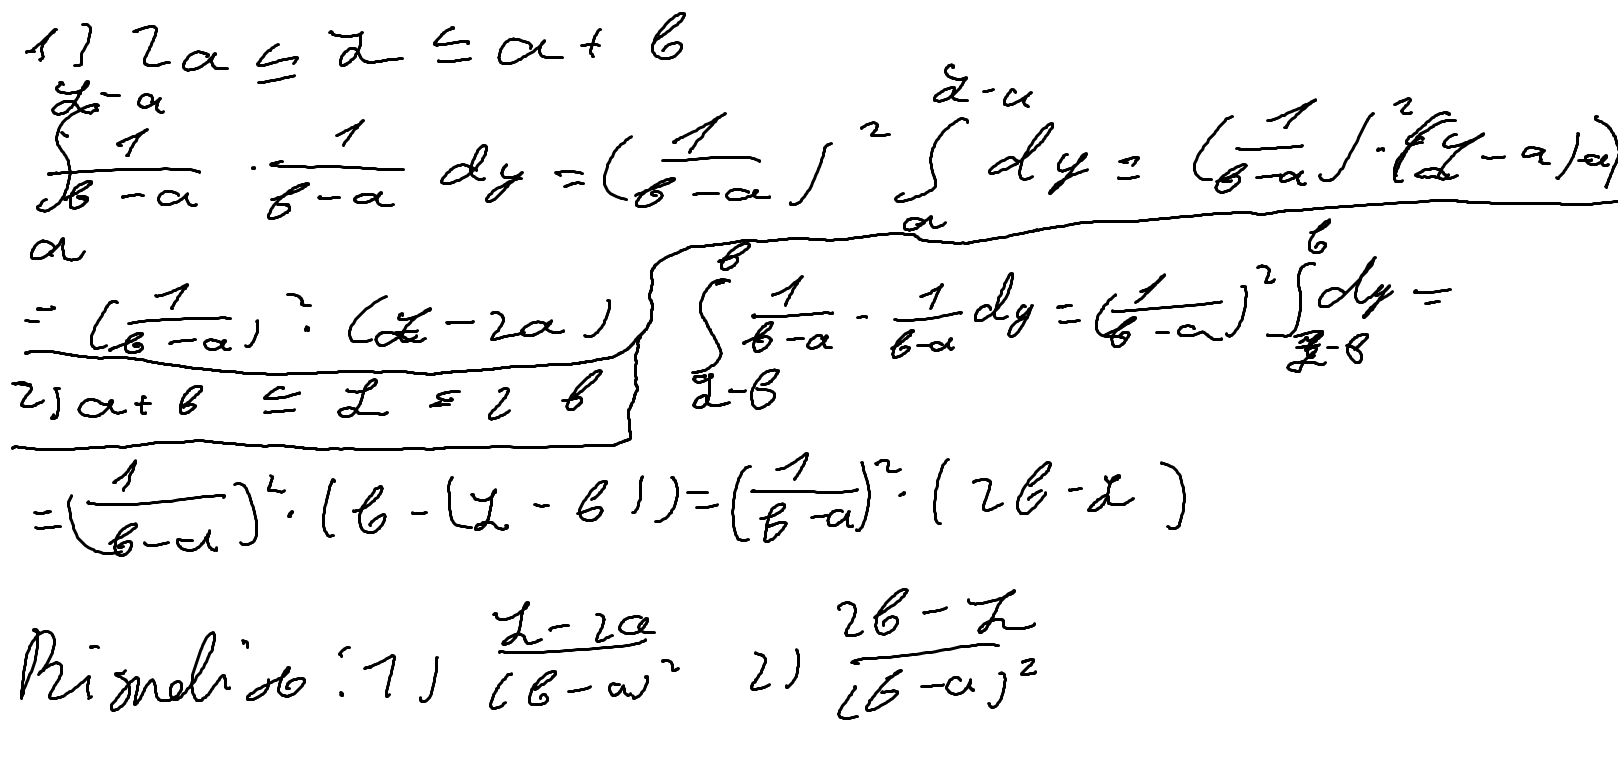 1) 2a ≤ z ≤ a + b
∫_a^{z-a} 1/(b-a) · 1/(b-a) dy = (1/(b-a))² ∫_a^{z-a} dy = (1/(b-a))² · ((z-a)-a)
= (1/(b-a))² · (z-2a)
2) a+b ≤ z ≤ 2b
∫_{z-b}^b 1/(b-a) · 1/(b-a) dy = (1/(b-a))² ∫_{z-b}^b dy =
= (1/(b-a))² · (b-(z-b)) = (1/(b-a))² · (2b-z)
: 1) (z-2a)/(b-a)² 2) (2b-z)/(b-a)²